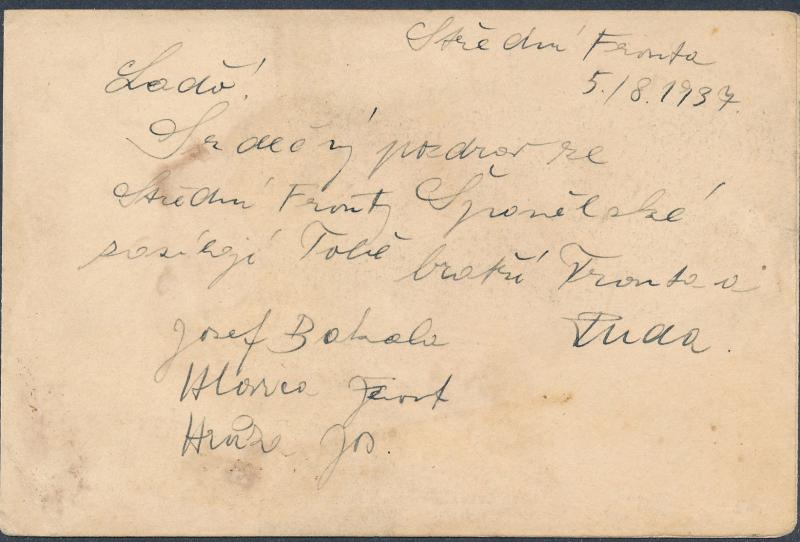 Střední Fronta
5./8. 1937.
Ladō!
Srdečný pozdrav ze
Střední Fronty Španělské
zasílají Tobě bratři Franta a
Ruda.
Josef Bakala
Hlavica
Hruža Jos.